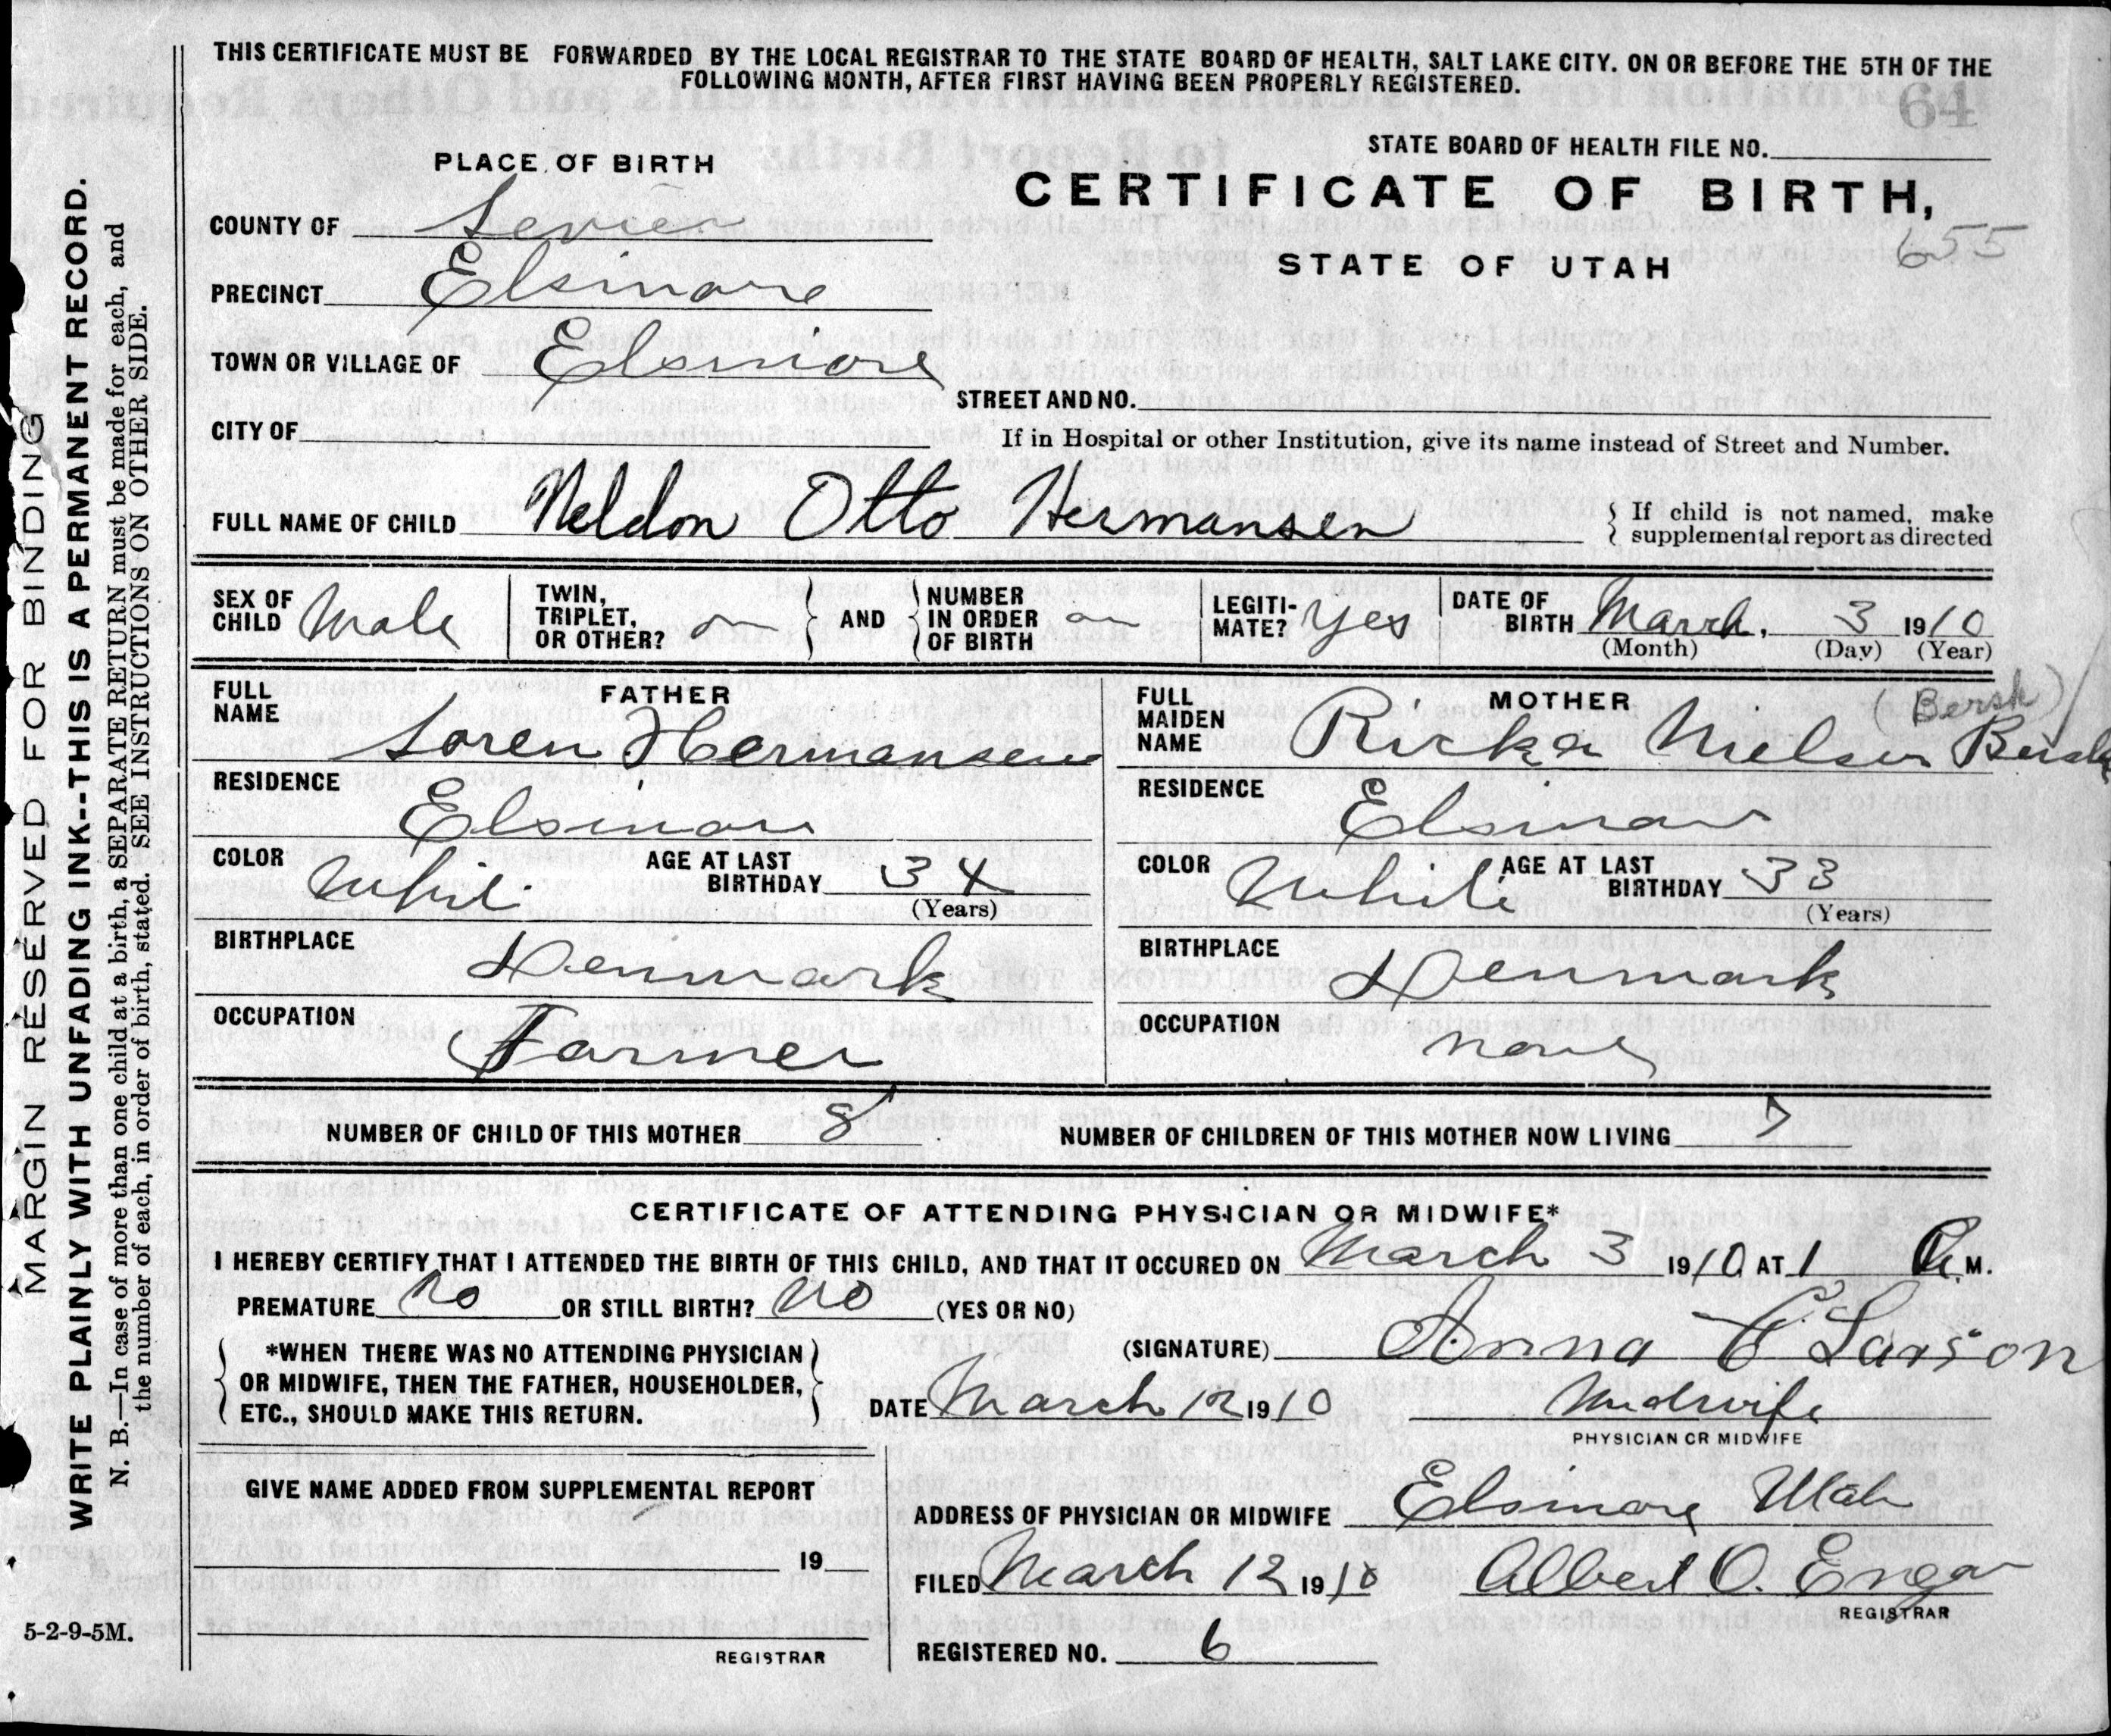 THIS CERTIFICATE MUST BE FORWARDED BY THE LOCAL REGISTRAR TO THE STATE BOARD OF HEALTH, SALT LAKE CITY. ON OR BEFORE THE 5TH OF THE
FOLLOWING MONTH, AFTER FIRST HAVING BEEN PROPERLY REGISTERED.
64
STATE BOARD OF HEALTH FILE NO.
PLACE OF BIRTH
CERTIFICATE OF BIRTH,
655
STATE OF UTAH
COUNTY OF Sevier
PRECINCT Elsinore
TOWN OR VILLAGE OF Elsinore
STREET AND NO.
CITY OF
If in Hospital or other Institution, give its name instead of Street and Number.
FULL NAME OF CHILD Neldon Otto Hermansen
If child is not named, make
supplemental report as directed
SEX OF CHILD Male
TWIN, TRIPLET, OR OTHER?
AND
NUMBER IN ORDER OF BIRTH
LEGITI-MATE? Yes
DATE OF BIRTH March, 3 1910
(Month) (Day) (Year)
FATHER
FULL NAME Loren Hermansen
RESIDENCE Elsinore
COLOR White AGE AT LAST BIRTHDAY 34
(Years)
BIRTHPLACE Denmark
OCCUPATION Farmer
MOTHER
(Bersk)
FULL MAIDEN NAME Ricka Nielsen Bersk
RESIDENCE Elsinore
COLOR White AGE AT LAST BIRTHDAY 33
(Years)
BIRTHPLACE Denmark
OCCUPATION none
NUMBER OF CHILD OF THIS MOTHER 8
NUMBER OF CHILDREN OF THIS MOTHER NOW LIVING 7
CERTIFICATE OF ATTENDING PHYSICIAN OR MIDWIFE*
I HEREBY CERTIFY THAT I ATTENDED THE BIRTH OF THIS CHILD, AND THAT IT OCCURED ON March 3 1910 AT 1 A.M.
PREMATURE no OR STILL BIRTH? no (YES OR NO)
*WHEN THERE WAS NO ATTENDING PHYSICIAN
OR MIDWIFE, THEN THE FATHER, HOUSEHOLDER,
ETC., SHOULD MAKE THIS RETURN.
(SIGNATURE) Anna C Larson
DATE March 12 1910 Midwife
PHYSICIAN OR MIDWIFE
GIVE NAME ADDED FROM SUPPLEMENTAL REPORT
19
REGISTRAR
ADDRESS OF PHYSICIAN OR MIDWIFE Elsinore Utah
FILED March 12 1910 Albert O. Engar
REGISTRAR
REGISTERED NO. 6
5-2-9-5M.
MARGIN RESERVED FOR BINDING
WRITE PLAINLY WITH UNFADING INK--THIS IS A PERMANENT RECORD.
N. B.—In case of more than one child at a birth, a SEPARATE RETURN must be made for each, and
the number of each, in order of birth, stated. SEE INSTRUCTIONS ON OTHER SIDE.